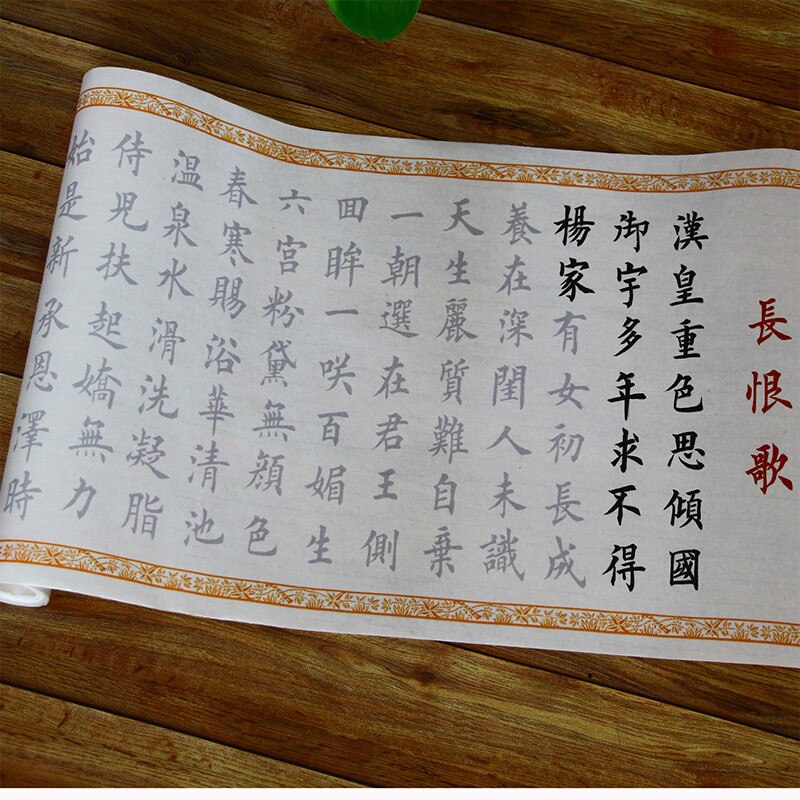 長恨歌
漢皇重色思傾國
御宇多年求不得
楊家有女初長成
養在深閨人未識
天生麗質難自棄
一朝選在君王側
回眸一咲百媚生
六宮粉黛無顔色
春寒賜浴華清池
温泉水滑洗凝脂
侍児扶起嬌無力
始是新承恩澤時